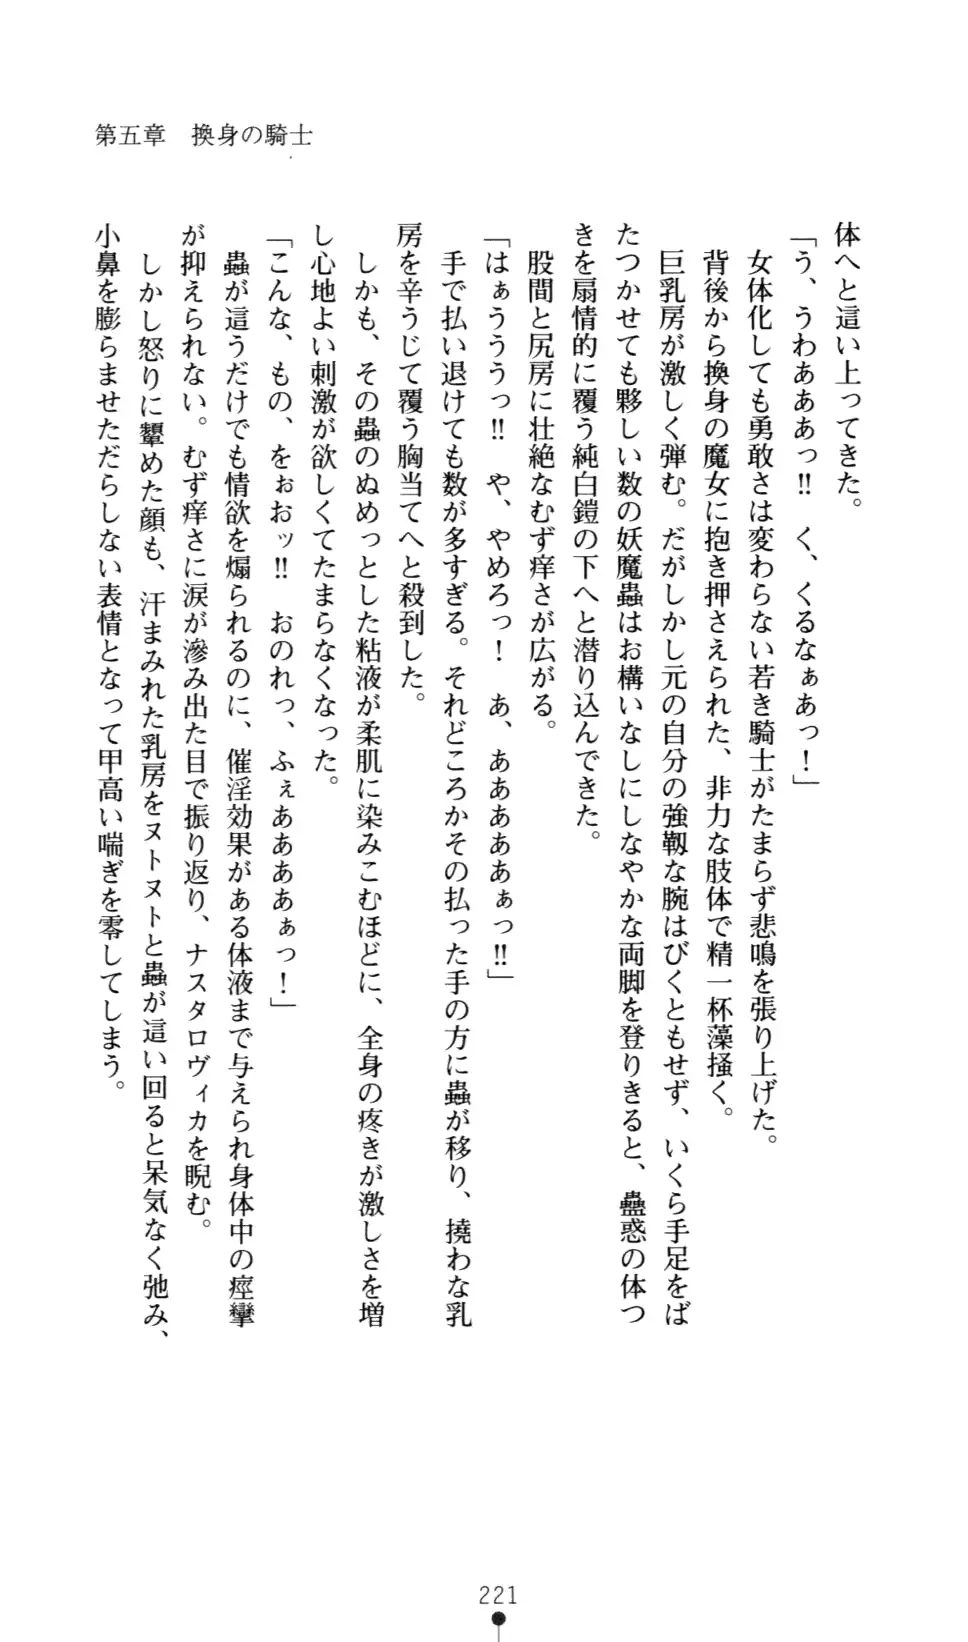 第五章　換身の騎士
体へと這い上ってきた。
「う、うわあああっ!!　く、くるなぁあっ！」
女体化しても勇敢さは変わらない若き騎士がたまらず悲鳴を張り上げた。
背後から換身の魔女に抱き押さえられた、非力な肢体で精一杯藻掻く。
巨乳房が激しく弾む。だがしかし元の自分の強靱な腕はびくともせず、いくら手足をば
たつかせても夥しい数の妖魔蟲はお構いなしにしなやかな両脚を登りきると、蠱惑の体つ
きを扇情的に覆う純白鎧の下へと潜り込んできた。
股間と尻房に壮絶なむず痒さが広がる。
「はぁううっ!!　や、やめろっ！　あ、ああああぁっ!!」
手で払い退けても数が多すぎる。それどころかその払った手の方に蟲が移り、撓わな乳
房を辛うじて覆う胸当てへと殺到した。
しかも、その蟲のぬめっとした粘液が柔肌に染みこむほどに、全身の疼きが激しさを増
し心地よい刺激が欲しくてたまらなくなった。
「こんな、もの、をぉおッ!!　おのれっ、ふぇああああぁっ！」
蟲が這うだけでも情欲を煽られるのに、催淫効果がある体液まで与えられ身体中の痙攣
が抑えられない。むず痒さに涙が滲み出た目で振り返り、ナスタロヴィカを睨む。
しかし怒りに顰めた顔も、汗まみれた乳房をヌトヌトと蟲が這い回ると呆気なく弛み、
小鼻を膨らませただらしない表情となって甲高い喘ぎを零してしまう。
221